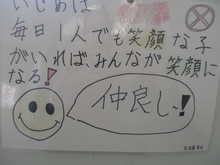 いじめは
毎日1人でも笑顔な子
がいれば、みんなが笑顔に
なる!
仲良し~!